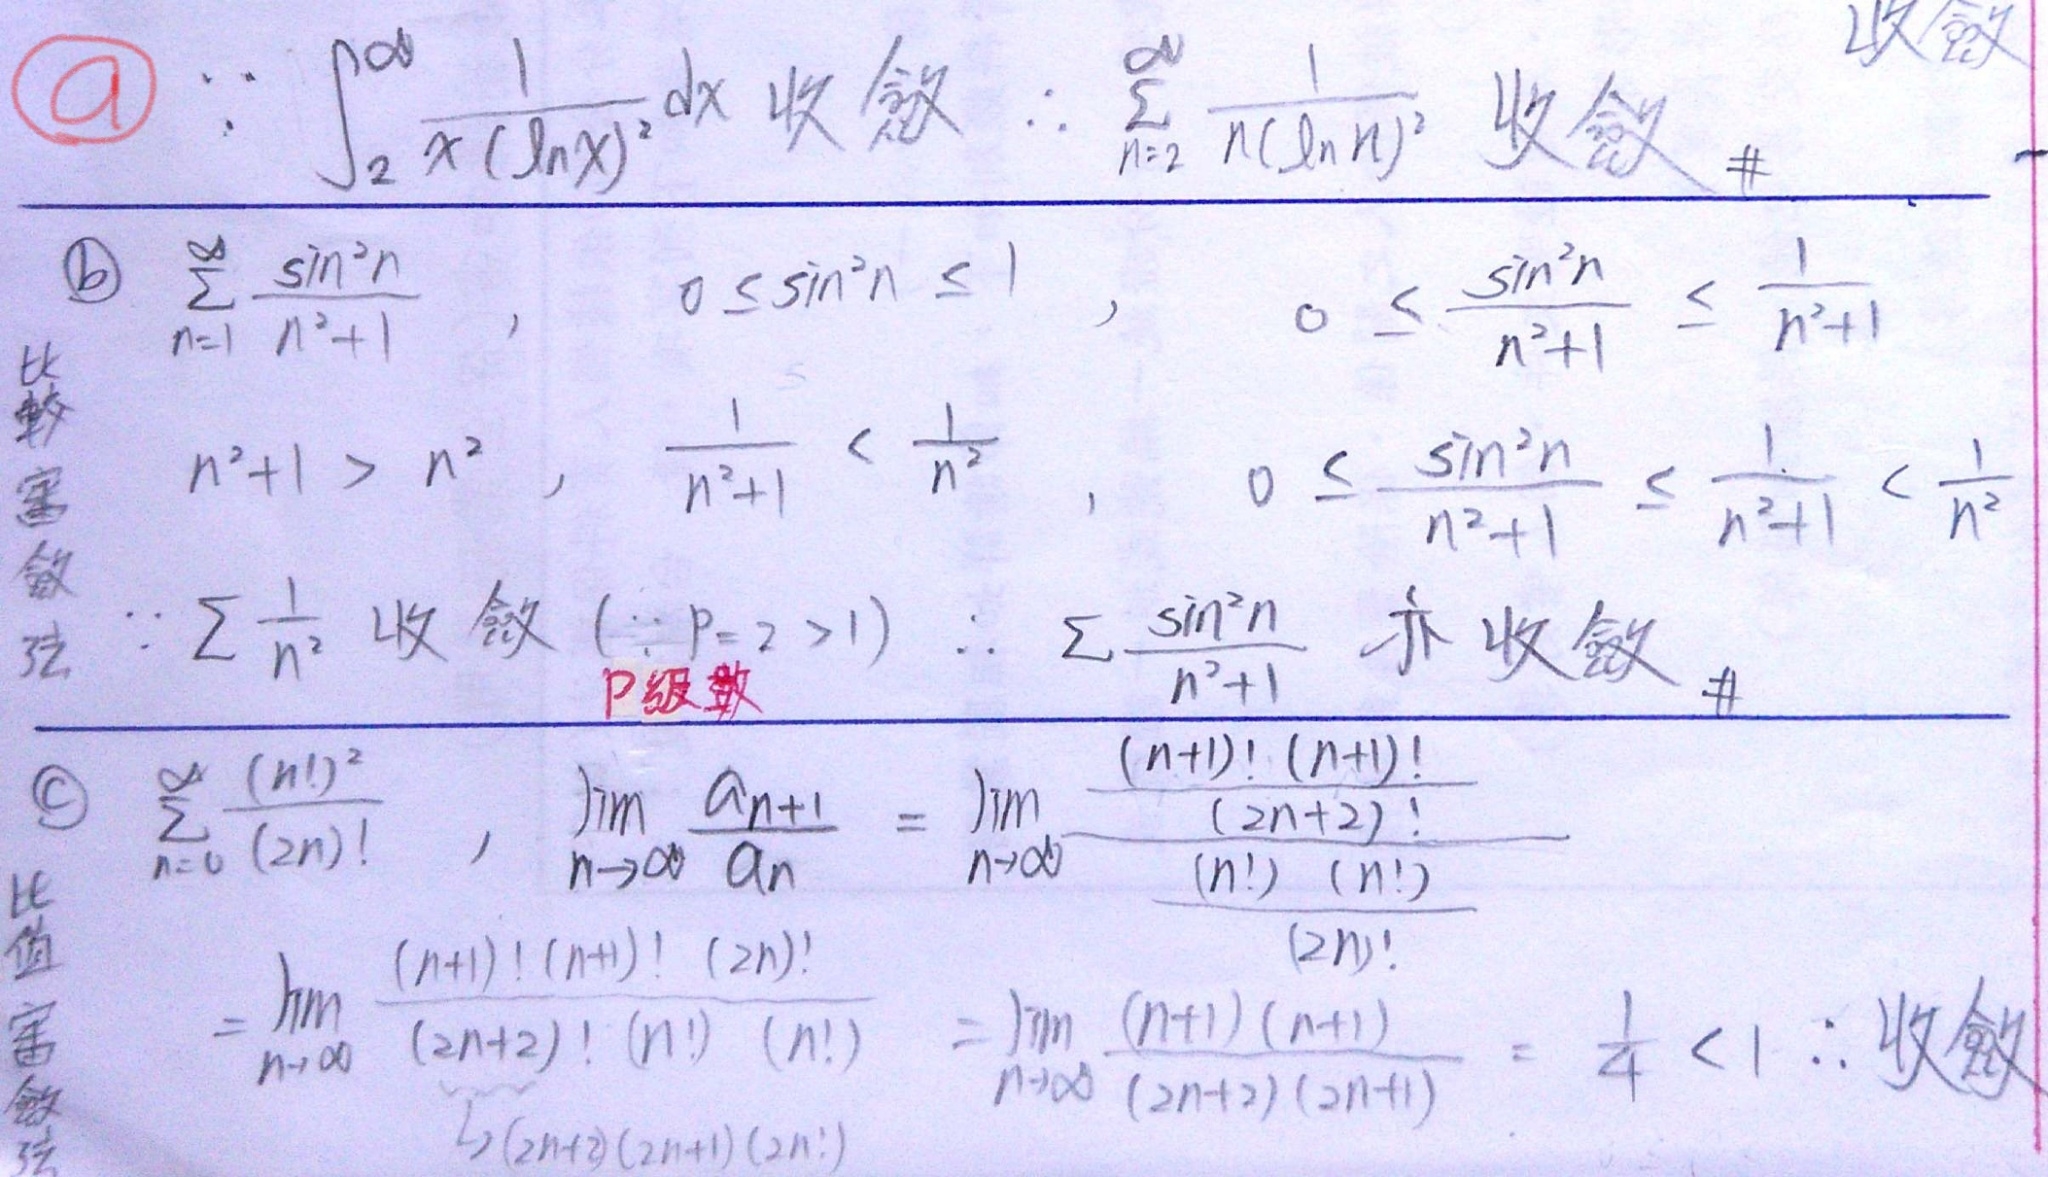 收斂
ⓐ ∵ ∫₂^∞ 1/(x(lnx)²) dx 收斂 ∴ ∑_{n=2}^∞ 1/(n(lnn)²) 收斂 #
ⓑ ∑_{n=1}^∞ sin²n/(n²+1) , 0 ≤ sin²n ≤ 1 , 0 ≤ sin²n/(n²+1) ≤ 1/(n²+1)
比較審斂法
n²+1 > n² , 1/(n²+1) < 1/n² , 0 ≤ sin²n/(n²+1) ≤ 1/(n²+1) < 1/n²
∵ ∑ 1/n² 收斂 (∵ P=2>1) ∴ ∑ sin²n/(n²+1) 亦收斂 #
P級數
ⓒ ∑_{n=0}^∞ (n!)²/(2n)! , lim_{n→∞} a_{n+1}/a_n = lim_{n→∞} ((n+1)!(n+1)!/(2n+2)!)/((n!)(n!)/(2n)!)
比值審斂法
= lim_{n→∞} (n+1)!(n+1)!(2n)!/((2n+2)!(n!)(n!)) = lim_{n→∞} (n+1)(n+1)/((2n+2)(2n+1)) = 1/4 < 1 ∴ 收斂
↳(2n+2)(2n+1)(2n!)